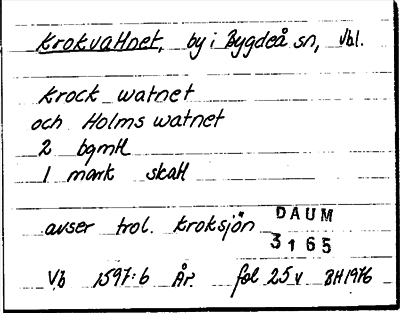 Krokvattnet, by i Bygdeå sn, Vbl.
Krock watnet
och Holms watnet
2 bgmtl
1 mark skatt
avser trol. Kroksjön DAUM
3165
Vb 1597:6 År. fol 25v BH1976